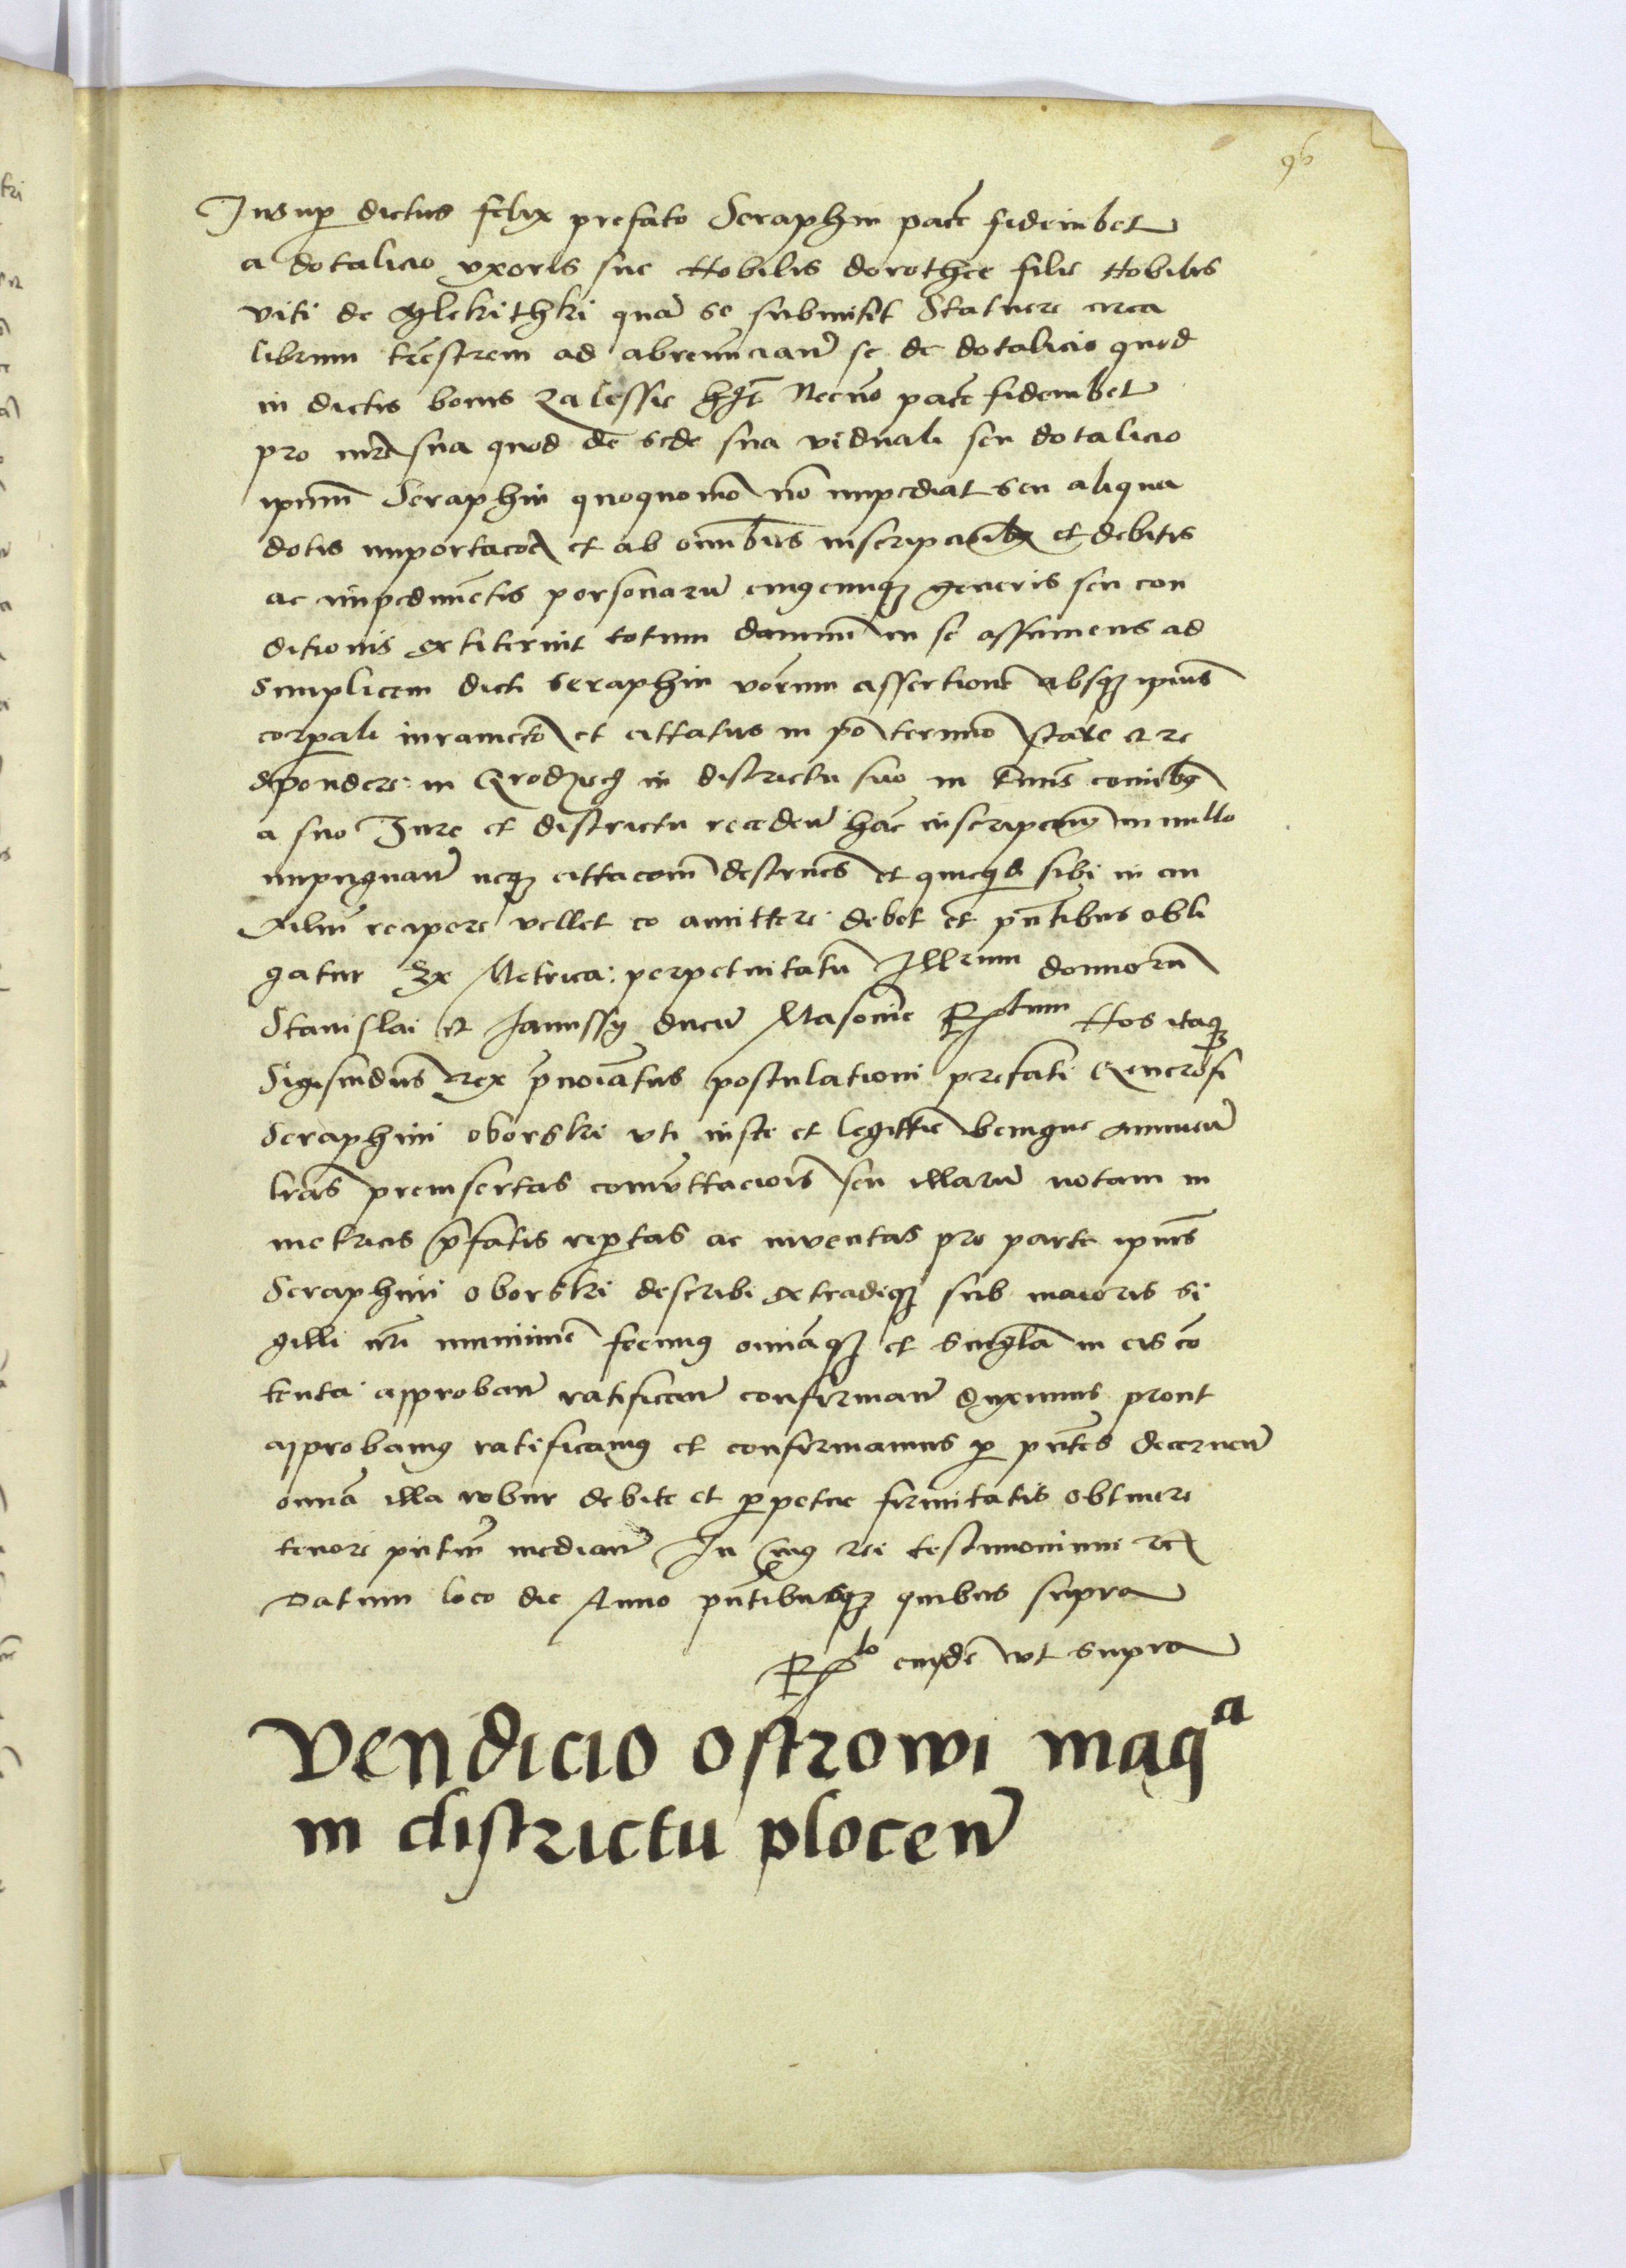 96
Insup dictus felix prefato Seraphin pacē fideiubet
a dotalicio vxoris sue Nobilis dorothee filie Nobilis
viti de Glekithki quā se submittit Statuere circa
librum trēstrem ad abrenūnciand se de dotalicio quod
in dictis bonis Zalessie hȝt Necnō pacē fideiubet
pro mrē sua quod de sede sua viduali seu dotalicio
ipm̄ Seraphin quoquomō nō impediat seu aliqua
dotis importacōe et ab om̄ibus inscripcioībȝ et debitis
ac impedimētis personarū cuiuscumqȝ generis seu con
ditionis extiterint totum damnū in se assumens ad
simplicem dicti Seraphin verbum assertionē absqȝ ipius
corpali iuramēto et cittatus in pō termino stare et re
spondere in Grodzecz in districtu suo in tmīs comibȝ
a suo Jure et districtu receden hāc inscripcionē in nullo
impugnan neqȝ cittacom destruēs et quicqd sibi in au
xiliū recipere vellet eo amittere debet et pn̄tibus obli
gatur Ex Metrica perpetuitatū Illrum dominorū
Stanislai et Janussy ducū Masovie Rptum Nos itaqȝ
Sigismdus Rex prenoiātus postulationi prefati Generosi
Seraphini oborski vti iuste et legittie benigne annuen
lrās preinsertas comūttaciois seu illarū notam in
metricis prefatis repertas ac inventas pro parte ipius
Seraphini oborski describi extradiqȝ sub maioris si
gilli nri munimē fecimus omiāqȝ et singla in eis cō
tenta approban ratifican confirman duximus prout
approbamus ratificamus et confirmamus p pn̄tes decernen
omiā illa robur debite et ppetue firmitatis obtinere
tenore pn̄tiū median In cuius rei testimonium rc
Datum loco die Anno pn̄tibusqȝ quibus supra
Rplo eiusdē vt supra
Vendicio ostrowi maqᵃ
in districtu plocen